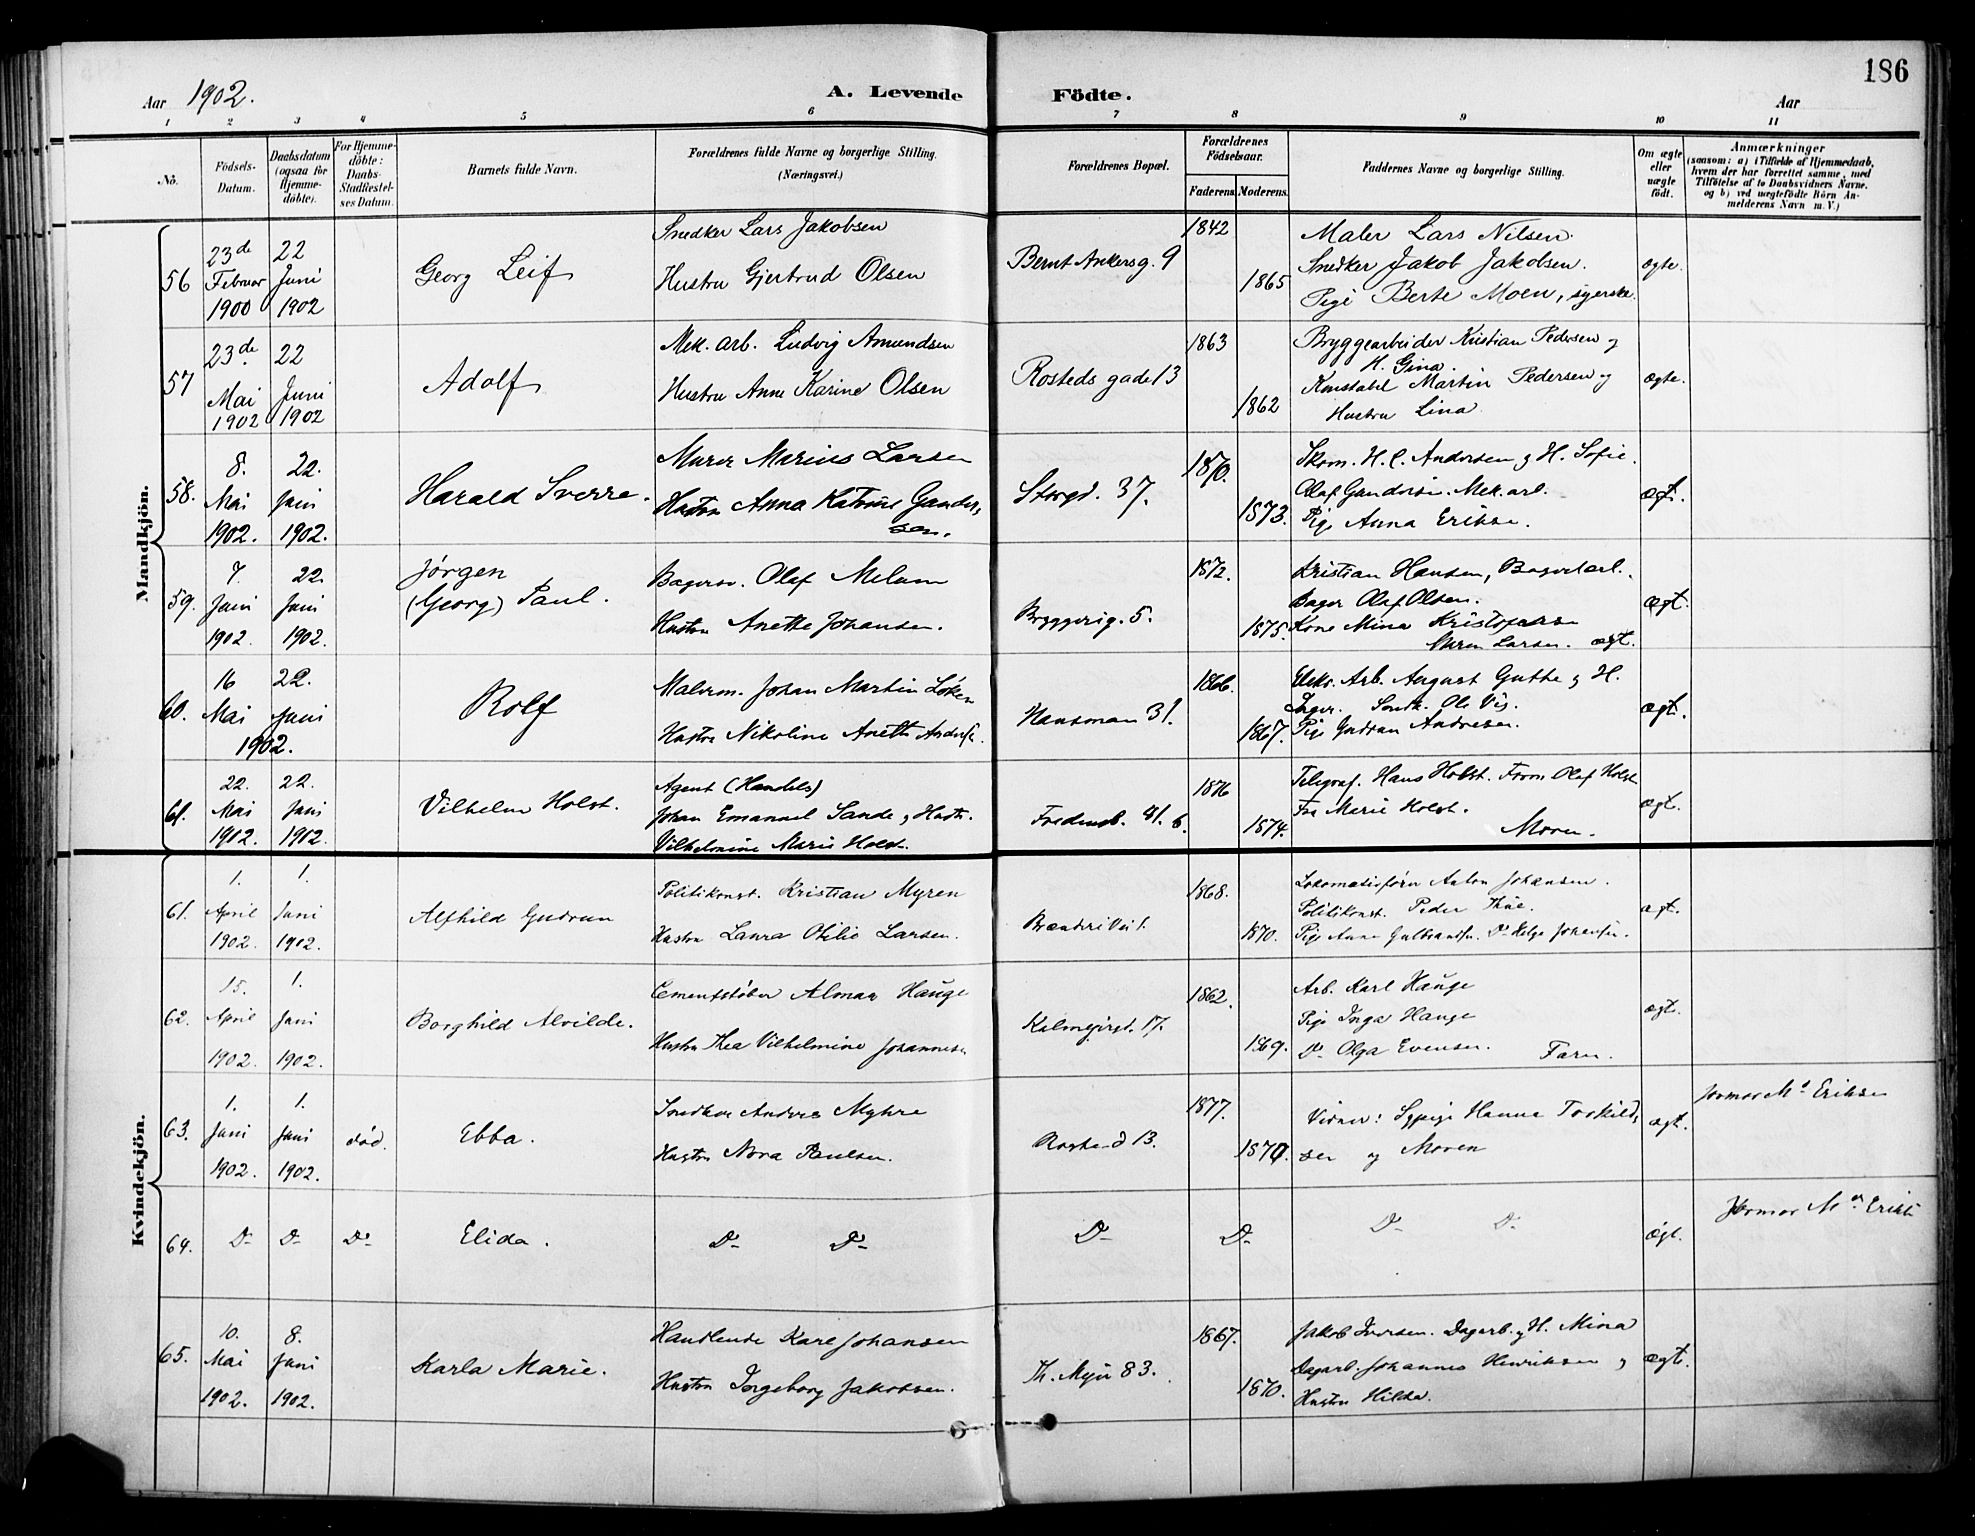 186
Aar 1902. A. Levende Födte. Aar
1 2 3 4 5 6 7 8 9 10 11
No. Födsels-Datum. Daabsdatum (ogsaa for Hjemme-döbte). For Hjemme-döbte: Daabs-Stadfæstel-ses Datum. Barnets fulde Navn. Forældrenes fulde Navne og borgerlige Stilling. (Næringsvei.) Forældrenes Bopæl. Forældrenes Födselsaar. Faderens. Moderens. Faddernes Navne og borgerlige Stilling. Om ægte eller uægte födt. Anmærkninger (saasom: a) i Tilfælde af Hjemmedaab, hvem der har forrettet samme, med Tilföielse af to Daabsvidners Navne. og b) ved uægtefödte Börn An-melderens Navn m. V.)
Mandkjön.
56 23de Februar 1900 22 Juni 1902 Georg Leif
Snedker Lars Jakobsen
Hustru Gjertrud Olsen
Bernt Ankersg. 9 1842 1865
Maler Lars Nilsen
Snedker Jakob Jakobsen.
Pige Berte Moen, syerske.
ægte.
57 23de Mai 1902 22 Juni 1902 Adolf
Mek. arb. Ludvig Amundsen
Hustru Anne Karine Olsen
Rosteds gade 13 1863 1862
Bryggearbeider Kristian Pedersen og
H. Gina.
Konstabel Martin Pedersen og
Hustru Lina
ægte.
58. 8. Mai 1902. 22. Juni 1902. Harald Sverre.
Murer Marius Larsen
Hustru Anna Katrine Gunder,
sen.
Storgd. 37. 1870. 1873.
Skom. H. C. Andersen g H. Sofie.
Olaf Gundersen. Mek. arb.
Pige Anna Eriksen.
ægt.
59. 7. Juni 1902. 22. Juni 1902. Jørgen
(Georg) Paul.
Bagersv. Olaf Melum
Hustru Anette Johansen.
Bryggerig. 5. 1872. 1875.
Kristian Hansen, Bageriarb.
Bager Olaf Olsen.
Kone Mina Kristofersen
Maren Larsen. ægt.
ægt.
60. 16 Mai 22. Juni 1902. Rolf
Malerm. Johan Martin Løken
Hustru Nikoline Anette Anders.
Hausman 31. 1866. 1867.
Arb. August Gutte g H.
Inger.
Pige Gudrun Andresen.
ægt.
61. 22. Mai 1902. 22. Juni 1902. Vilhelm Holst.
Agent (Handels)
Johan Emanuel Sande g Hustr.
Vilhelmine Marie Holst.
Fredensb. 41. b. 1876 1874.
Telegraf. Hans Holst. Form Olaf Holst
Fru Marie Holst.
Moren.
ægt.
Kvindekjön.
61. 1. April 1902. 1. Juni 1902. Alfhild Gudrun
Politikonst. Kristian Myren
Hustru Laura Otilie Larsen.
Brænderi Vei 1. 1868. 1870.
Lokomotivfører Anton Johansen.
Politikonst. Peder Thue.
Pige Anna Gulbrandsn. Do Helga Johansen.
ægt.
62. 15. April 1902. 1. Juni 1902. Borghild Alvilde.
Cementstøber Almar Hauge
Hustru Thea Vilhelmine Johannesen
Kalmeyirgt. 17. 1862. 1869.
Arb. Karl Hauge
Pige Inga Hauge
Do Olga Evensen. Faren.
ægt.
63. 1. Juni 1902. 1. Juni 1902. død. Ebba.
Snedker Anders Myhre
Hustru Nora Paulsen.
Rostesd 13. 1877. 1879.
Vidner: Sypige Hanna Torkild,
sen og Moren
ægt.
Jormor Md Eriksen
64. Do Do Do Elida.
Do Do Do Do Do Do
ægt.
Jormor Md Eriks
65. 10. Mai 1902. 8. Juni 1902. Karla Marie.
Handlende Karl Johansen
Hustru Ingeborg Jakobsen.
Th. Myer 83. 1867. 1870.
Jakob Iversen. Dagarb. g H. Mina
Dagarb. Johannes Henriksen g
Hustru Hilda.
ægt.